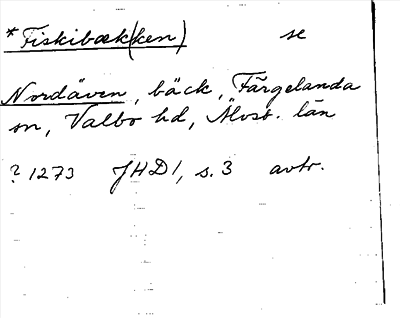 *Fiskibæk(ken) se
Nordåven, bäck, Färgelanda
sn, Valbo hd, Älvsb. län
? 1273 JHD 1, s. 3 avtr.